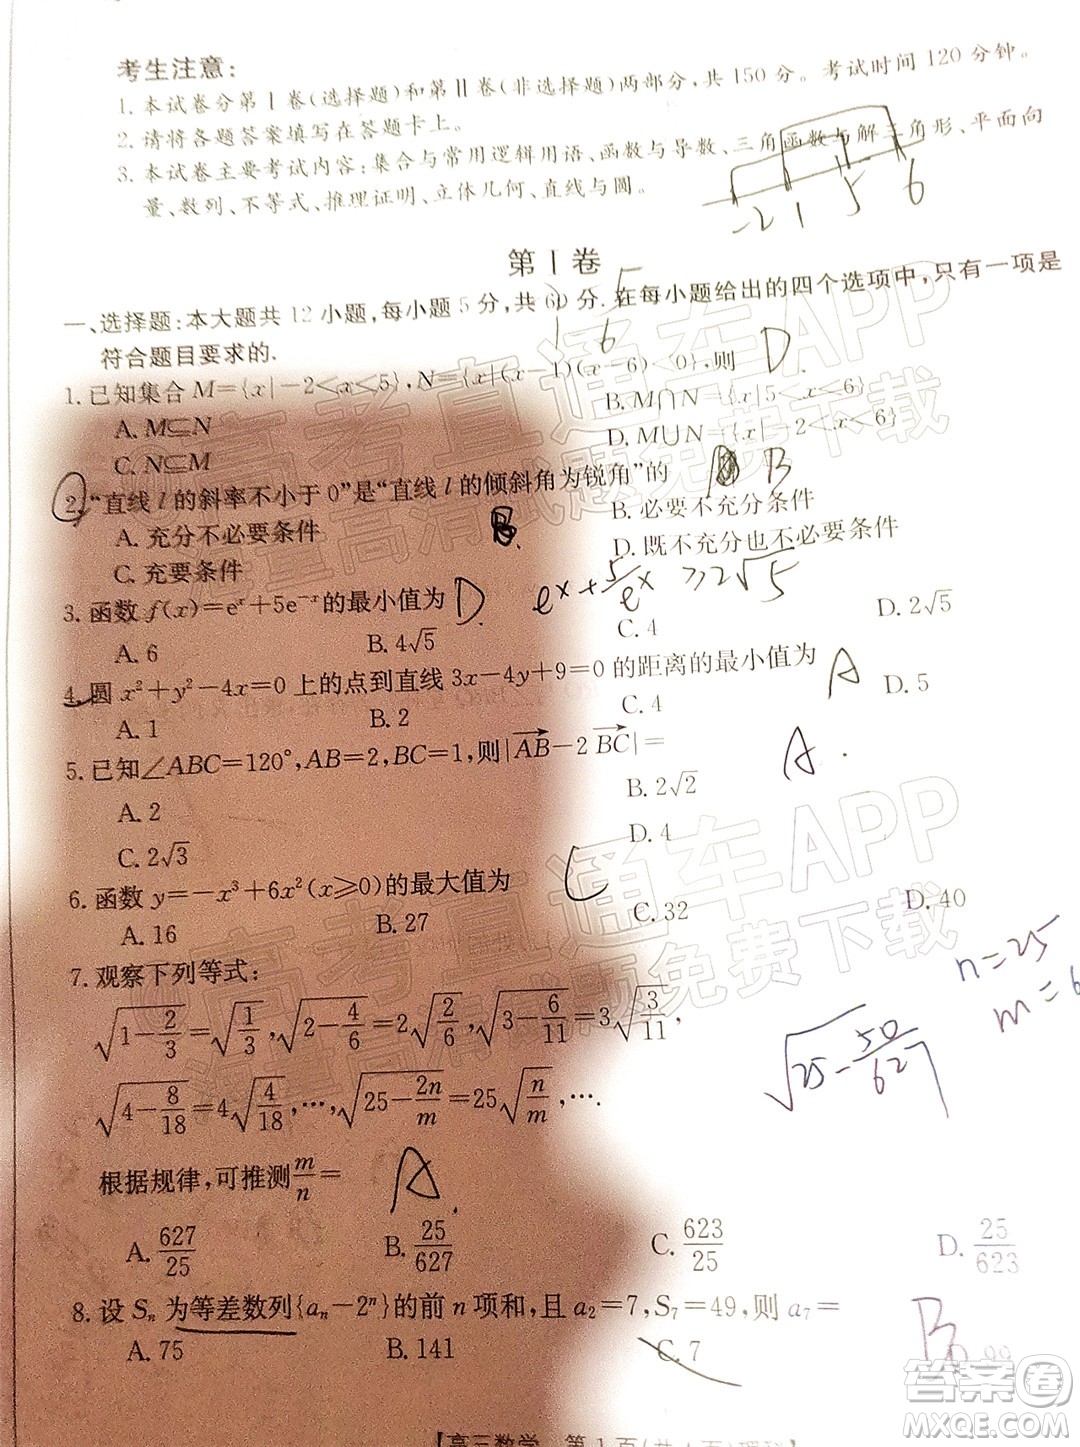 考生注意:
1. 本试卷分第Ⅰ卷(选择题)和第Ⅱ卷(非选择题)两部分,共150分。考试时间120分钟。
2. 请将各题答案填写在答题卡上。
3. 本试卷主要考试内容:集合与常用逻辑用语、函数与导数、三角函数与解三角形、平面向
量、数列、不等式、推理证明、立体几何、直线与圆。
-2 1 5 6
第Ⅰ卷
一、选择题:本大题共12小题,每小题5分,共60分.在每小题给出的四个选项中,只有一项是
符合题目要求的.
1. 已知集合M={x|-2<x<5},N={x|(x-1)(x-6)<0},则 D.
A. M⊆N B. M∩N={x|5<x<6}
C. N⊆M D. M∪N={x|-2<x<6}
2. “直线l的斜率不小于0”是“直线l的倾斜角为锐角”的 B
A. 充分不必要条件 B. 必要不充分条件
C. 充要条件 D. 既不充分也不必要条件
3. 函数f(x)=eˣ+5e⁻ˣ的最小值为 D eˣ+5/eˣ ≥2√5
A. 6 B. 4√5 C. 4 D. 2√5
4. 圆x²+y²-4x=0上的点到直线3x-4y+9=0的距离的最小值为 A
A. 1 B. 2 C. 4 D. 5
5. 已知∠ABC=120°,AB=2,BC=1,则|AB-2BC|= A.
A. 2 B. 2√2
C. 2√3 D. 4
6. 函数y=-x³+6x²(x≥0)的最大值为 C
A. 16 B. 27 C. 32 D. 40
7. 观察下列等式: n=25
√(1-2/3)=√(1/3),√(2-4/6)=2√(2/6),√(3-6/11)=3√(3/11), √(25-50/62 m=6
√(4-8/18)=4√(4/18),…,√(25-2n/m)=25√(n/m),….
根据规律,可推测m/n= A.
A. 627/25 B. 25/627 C. 623/25 D. 25/623
8. 设Sₙ为等差数列{aₙ-2ⁿ}的前n项和,且a₂=7,S₇=49,则a₇= B
A. 75 B. 141 C. 7 99
【高三数学 第1页(共4页)理科】
高考直通车APP
海量高清试题免费下载
高考直通车APP
海量高清试题免费下载
答案圈
MXQE.COM